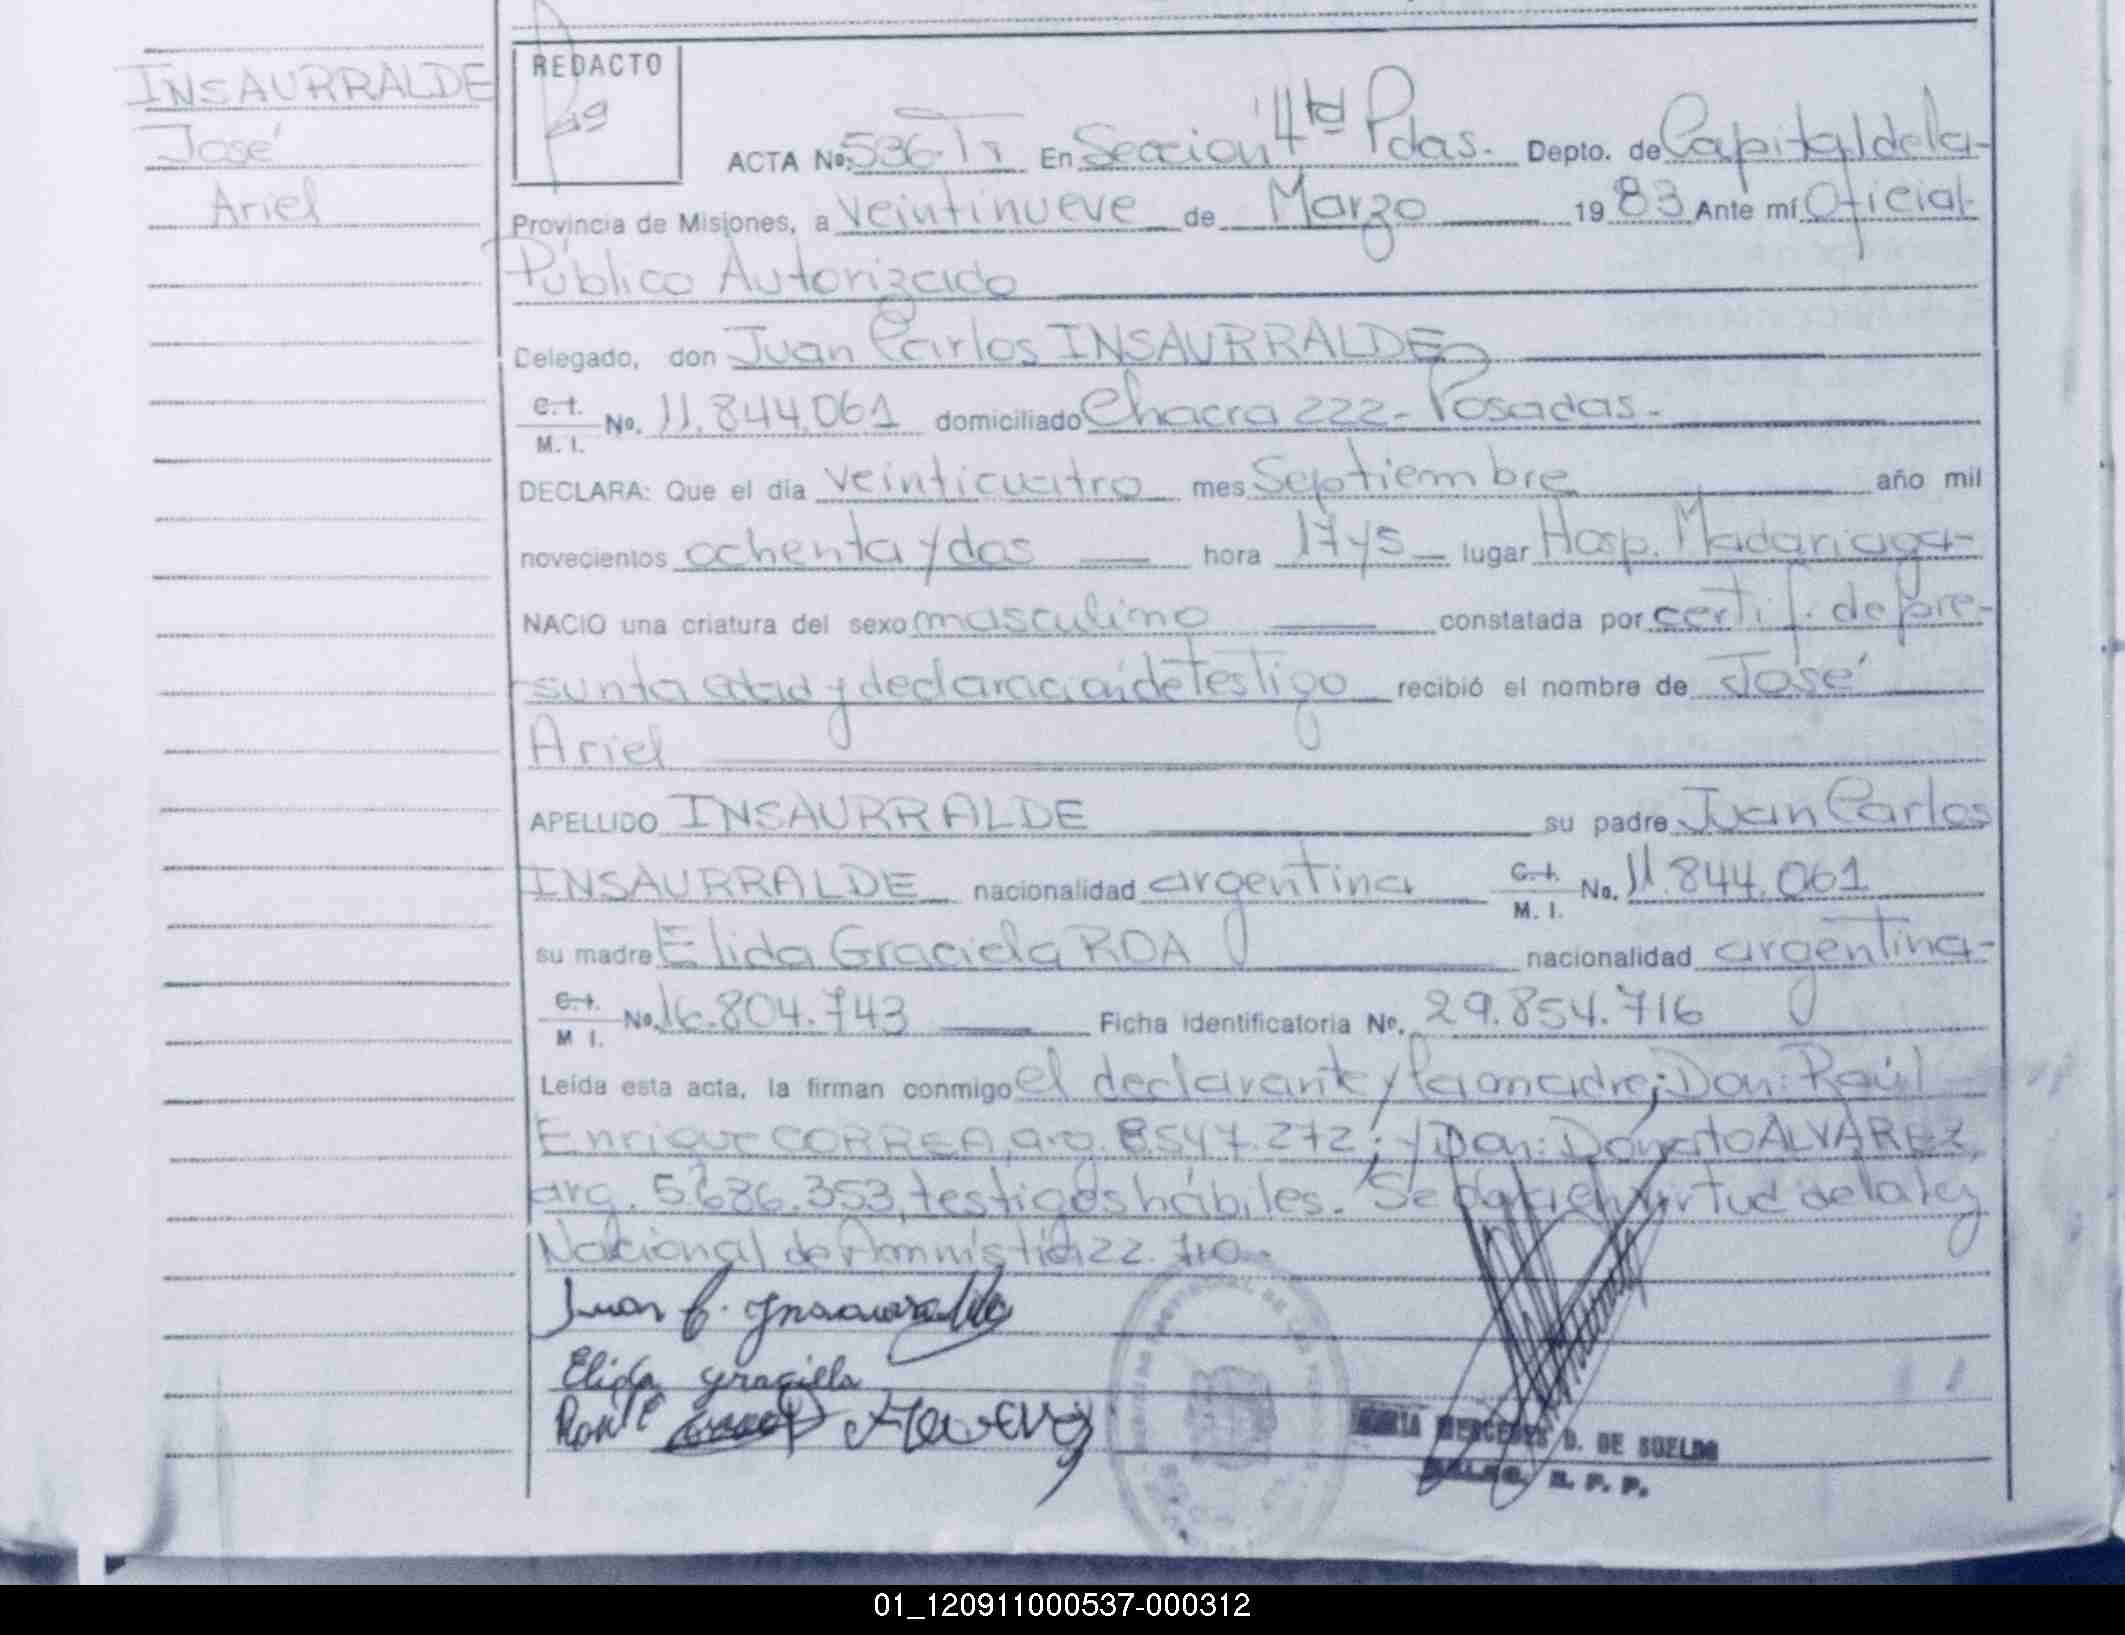 INSAURRALDE
José
Ariel
REDACTO
ACTA Nº. 536-T I En Seccion 4ta Pdas. Depto. de Capital de la
Provincia de Misiones, a veintinueve de Marzo 1983 Ante mí Oficial
Público Autorizado
Delegado, don Juan Carlos INSAURRALDE
C. I. M. I. No. 11.844.061 domiciliado Chacra 222- Posadas.-
DECLARA: Que el día veinticuatro mes Septiembre año mil
novecientos ochenta y dos hora 17 y 5 lugar Hosp. Madariaga-
NACIO una criatura del sexo masculino constatada por certif. de pre-
sunta edad y declaración de testigo recibió el nombre de José
Ariel
APELLIDO INSAURRALDE su padre Juan Carlos
INSAURRALDE nacionalidad argentina C. I. M. I. No. 11.844.061
su madre Elida Graciela ROA nacionalidad argentina-
C. I. M I. No. 16.804.743 Ficha identificatoria Nº. 29.854.716
Leída esta acta, la firman conmigo el declarante y la madre; Don: Raúl
Enrique CORREA, arg. 8.547.272; y Don: Donato ALVAREZ,
arg. 5.686.353, testigos hábiles. Se en virtud de la ley
Nacional de Amnistia 22.710
Juan C. Insaurralde
Elida graciela
MARIA MERCEDES D. DE SUELDO
01_120911000537-000312